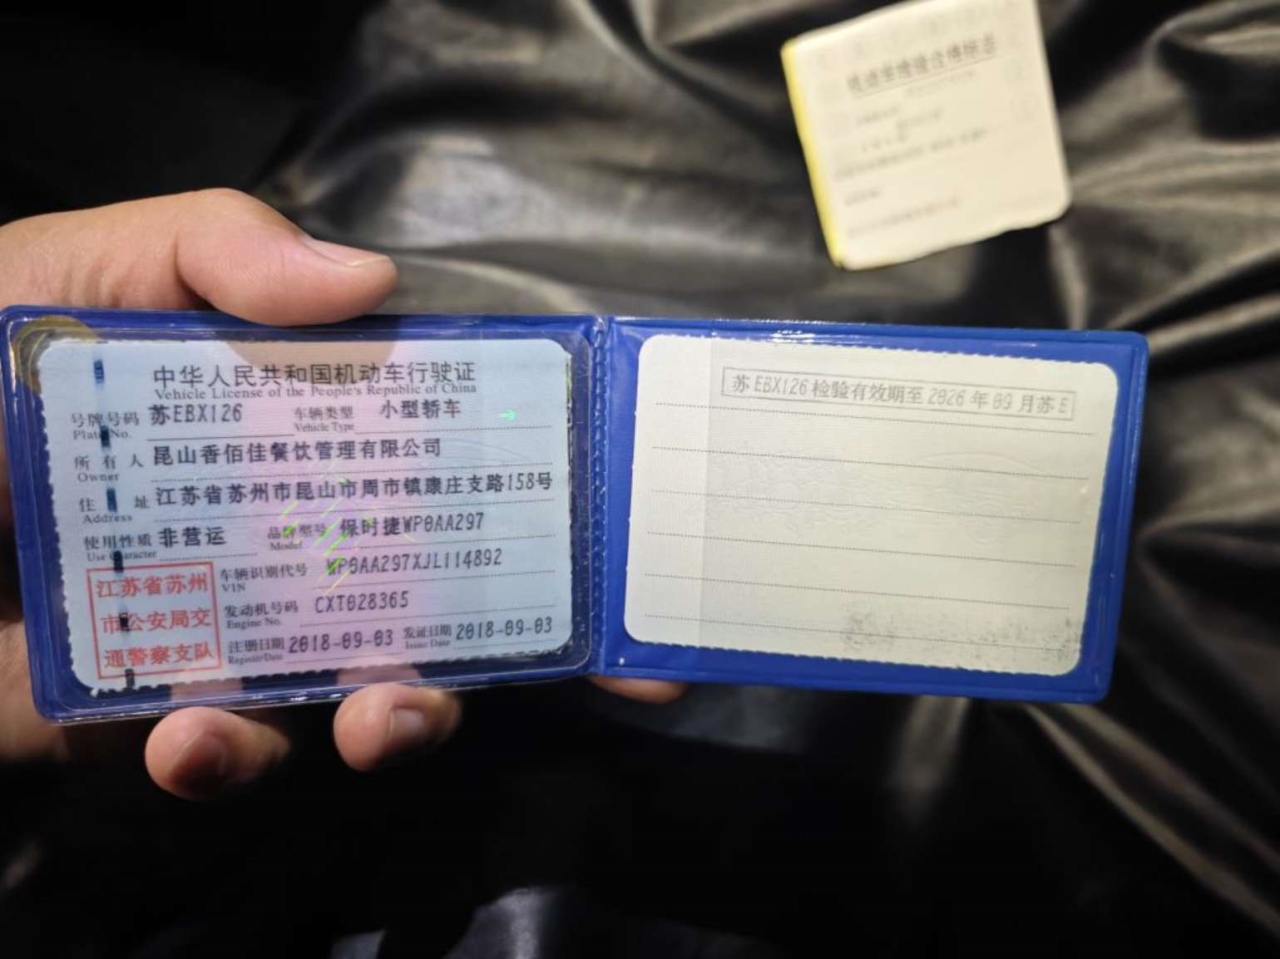 中华人民共和国机动车行驶证
Vehicle License of the People's Republic of China
号牌号码 苏EBX126 车辆类型 小型轿车
Plate No. Vehicle Type
所有人 昆山香佰佳餐饮管理有限公司
Owner
住址 江苏省苏州市昆山市周市镇康庄支路158号
Address
使用性质 非营运 品牌型号 保时捷WP0AA297
Use Character Model
车辆识别代号 WP0AA297XJL114892
VIN
发动机号码 CXT028365
Engine No.
注册日期 2018-09-03 发证日期 2018-09-03
Register Date Issue Date
江苏省苏州
市公安局交
通警察支队
苏EBX126检验有效期至2026年09月苏E
机动车检验合格标志